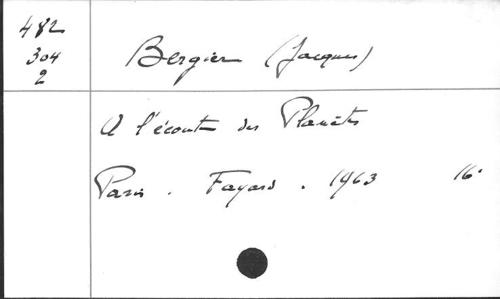 482
304
2
Bergier (Jacques)
A l'écoute des Planètes
Paris . Fayard . 1963 16°